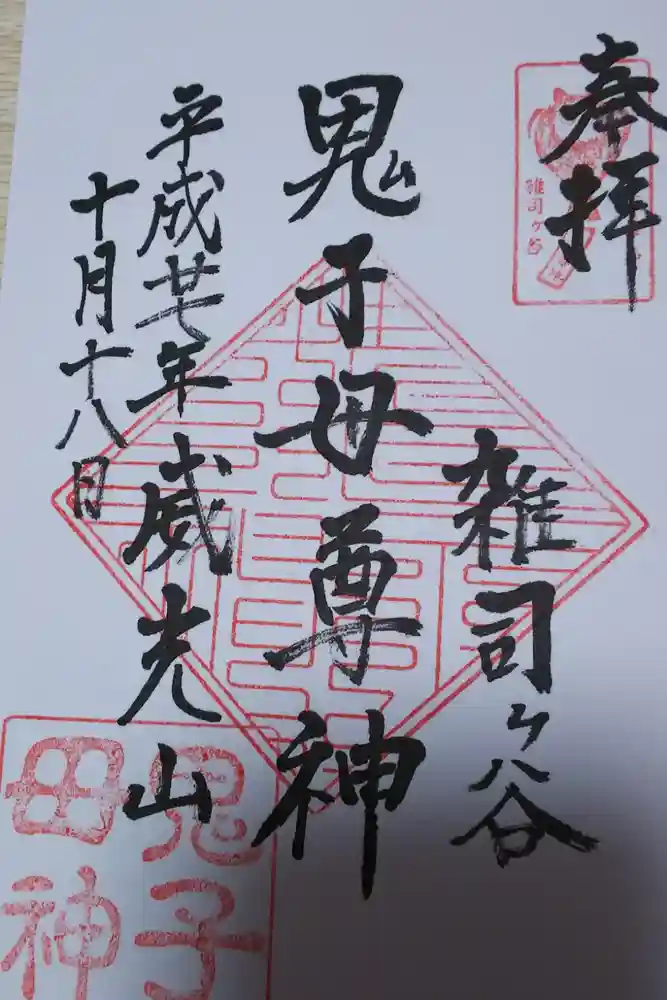 奉拝
雑司ヶ谷
雑司ヶ谷
鬼子母尊神
平成廿七年
十月十八日
威光山
鬼子
母神